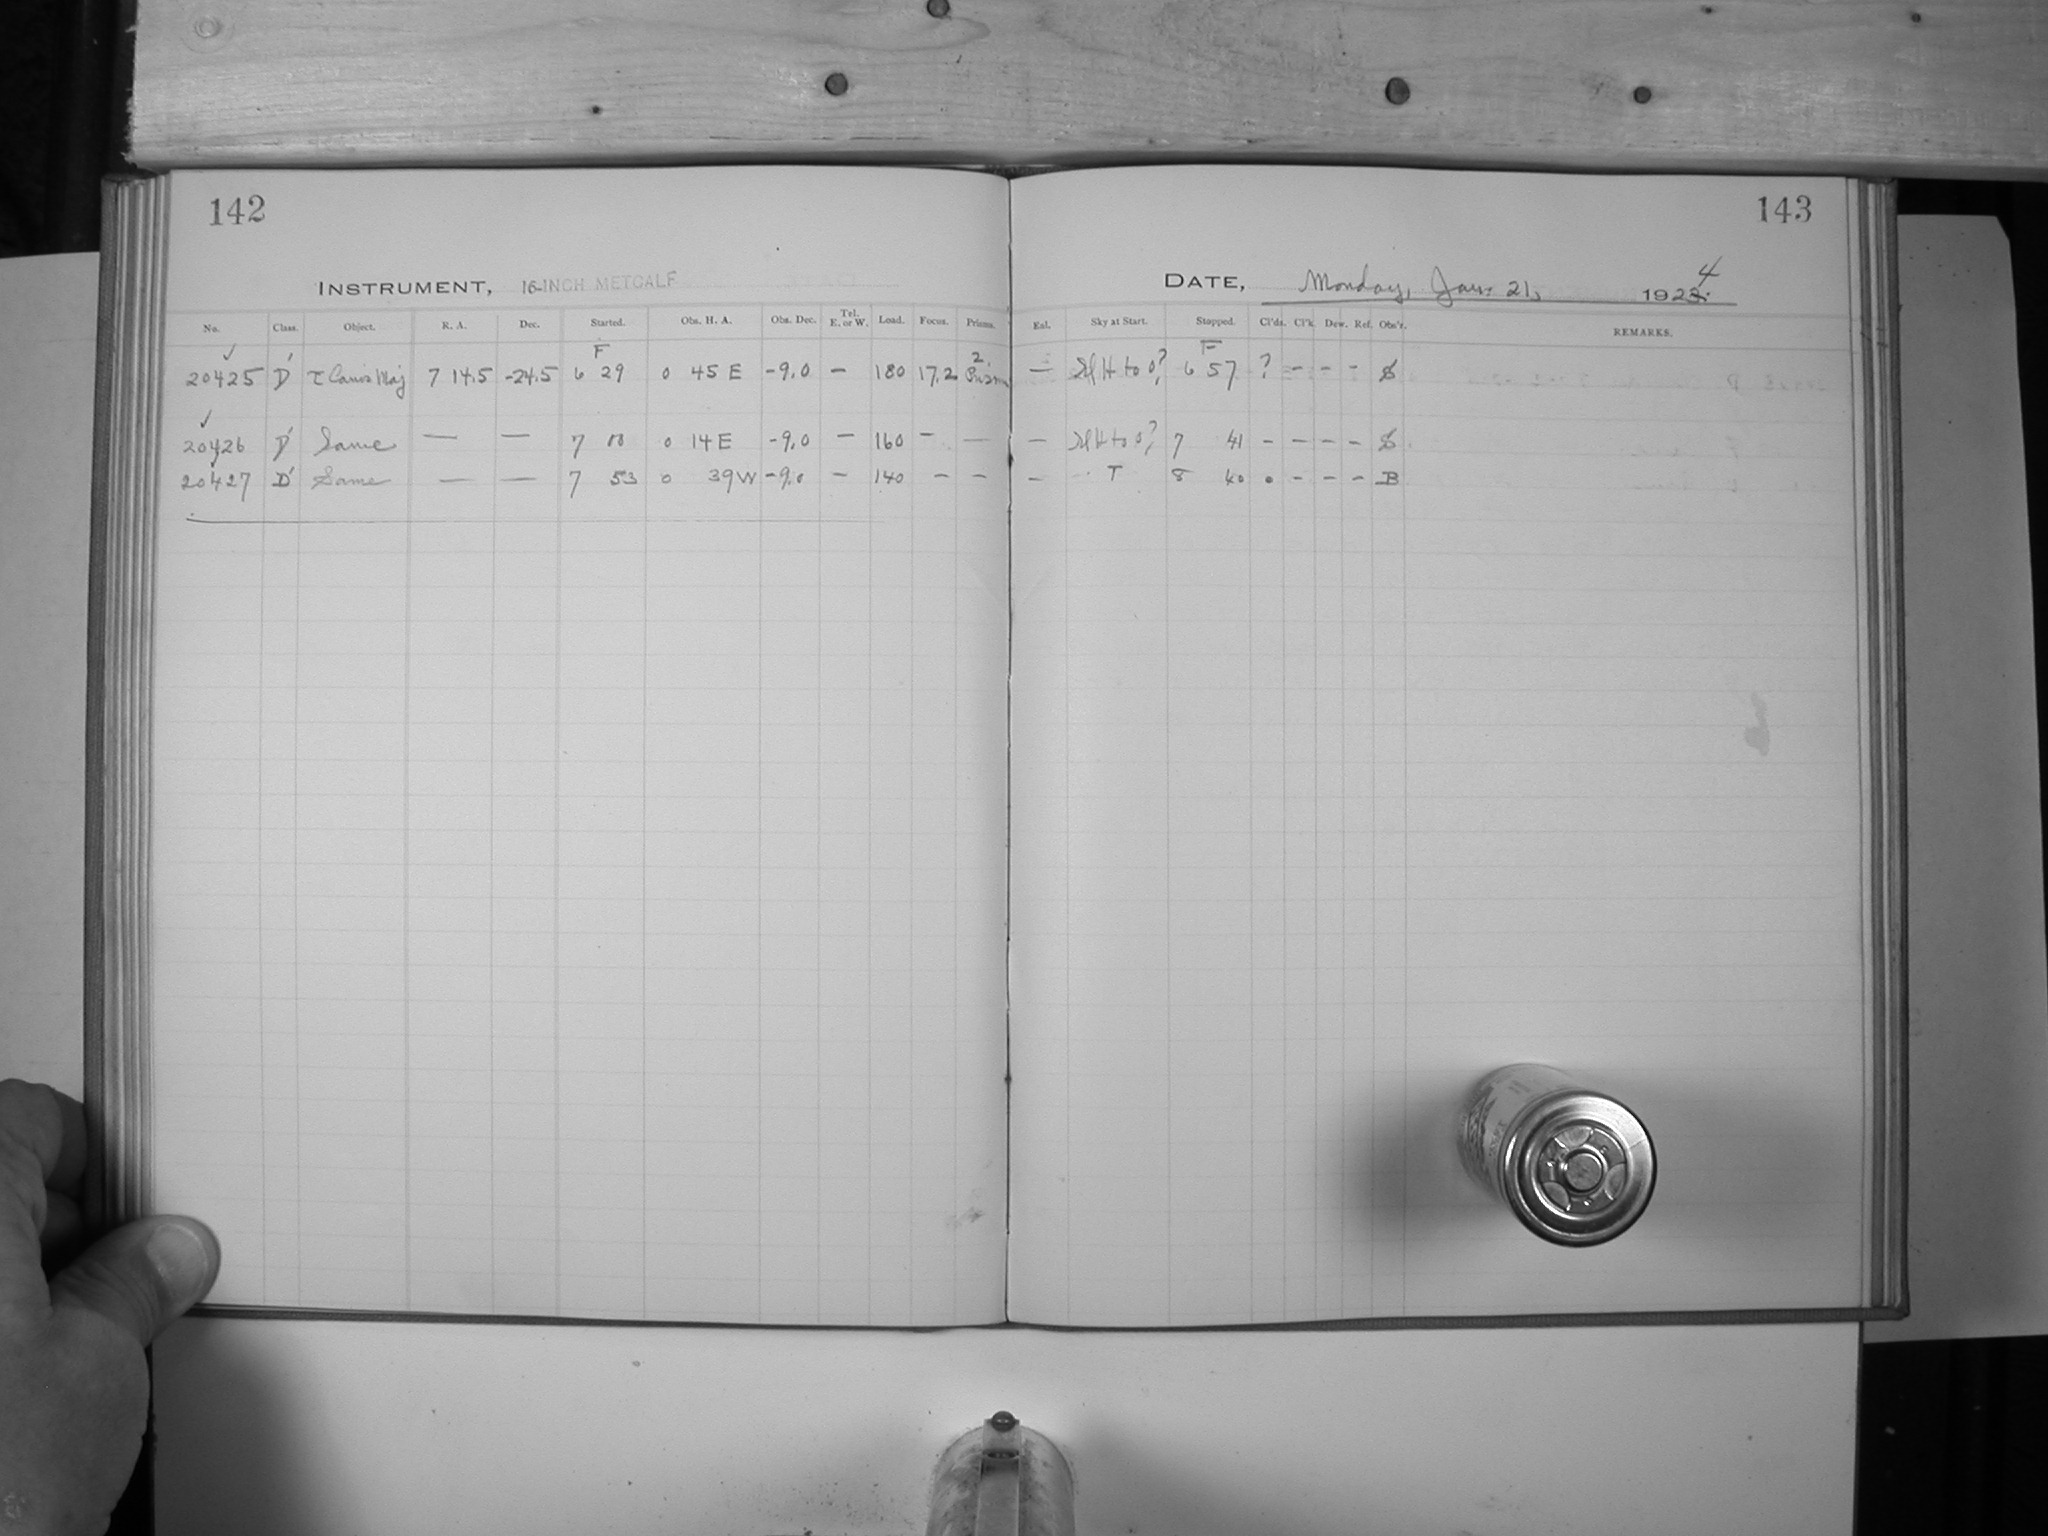 142
143
INSTRUMENT, 16-INCH METCALF
DATE, Monday, Jan. 21, 1924
No. Class. Object. R. A. Dec. Started. Obs. H. A. Obs. Dec. Tel. E. or W. Load. Focus. Prisms. Eal. Sky at Start. Stopped. Cl'ds. Cl'k Dew. Ref. Obs'r. REMARKS.
F 2 F
20425 D' τ Canis Maj 7 14.5 -24.5 6 29 0 45 E -9.0 — 180 17.2 Prism — H to 0? 6 57 ? - - - S
20426 D' Same — — 7 0 14 E -9.0 — 160 - — — H to 0? 7 41 - - - - S
20427 D' Same — — 7 53 0 39 W -9.0 - 140 - - - T 8 40 - - - B